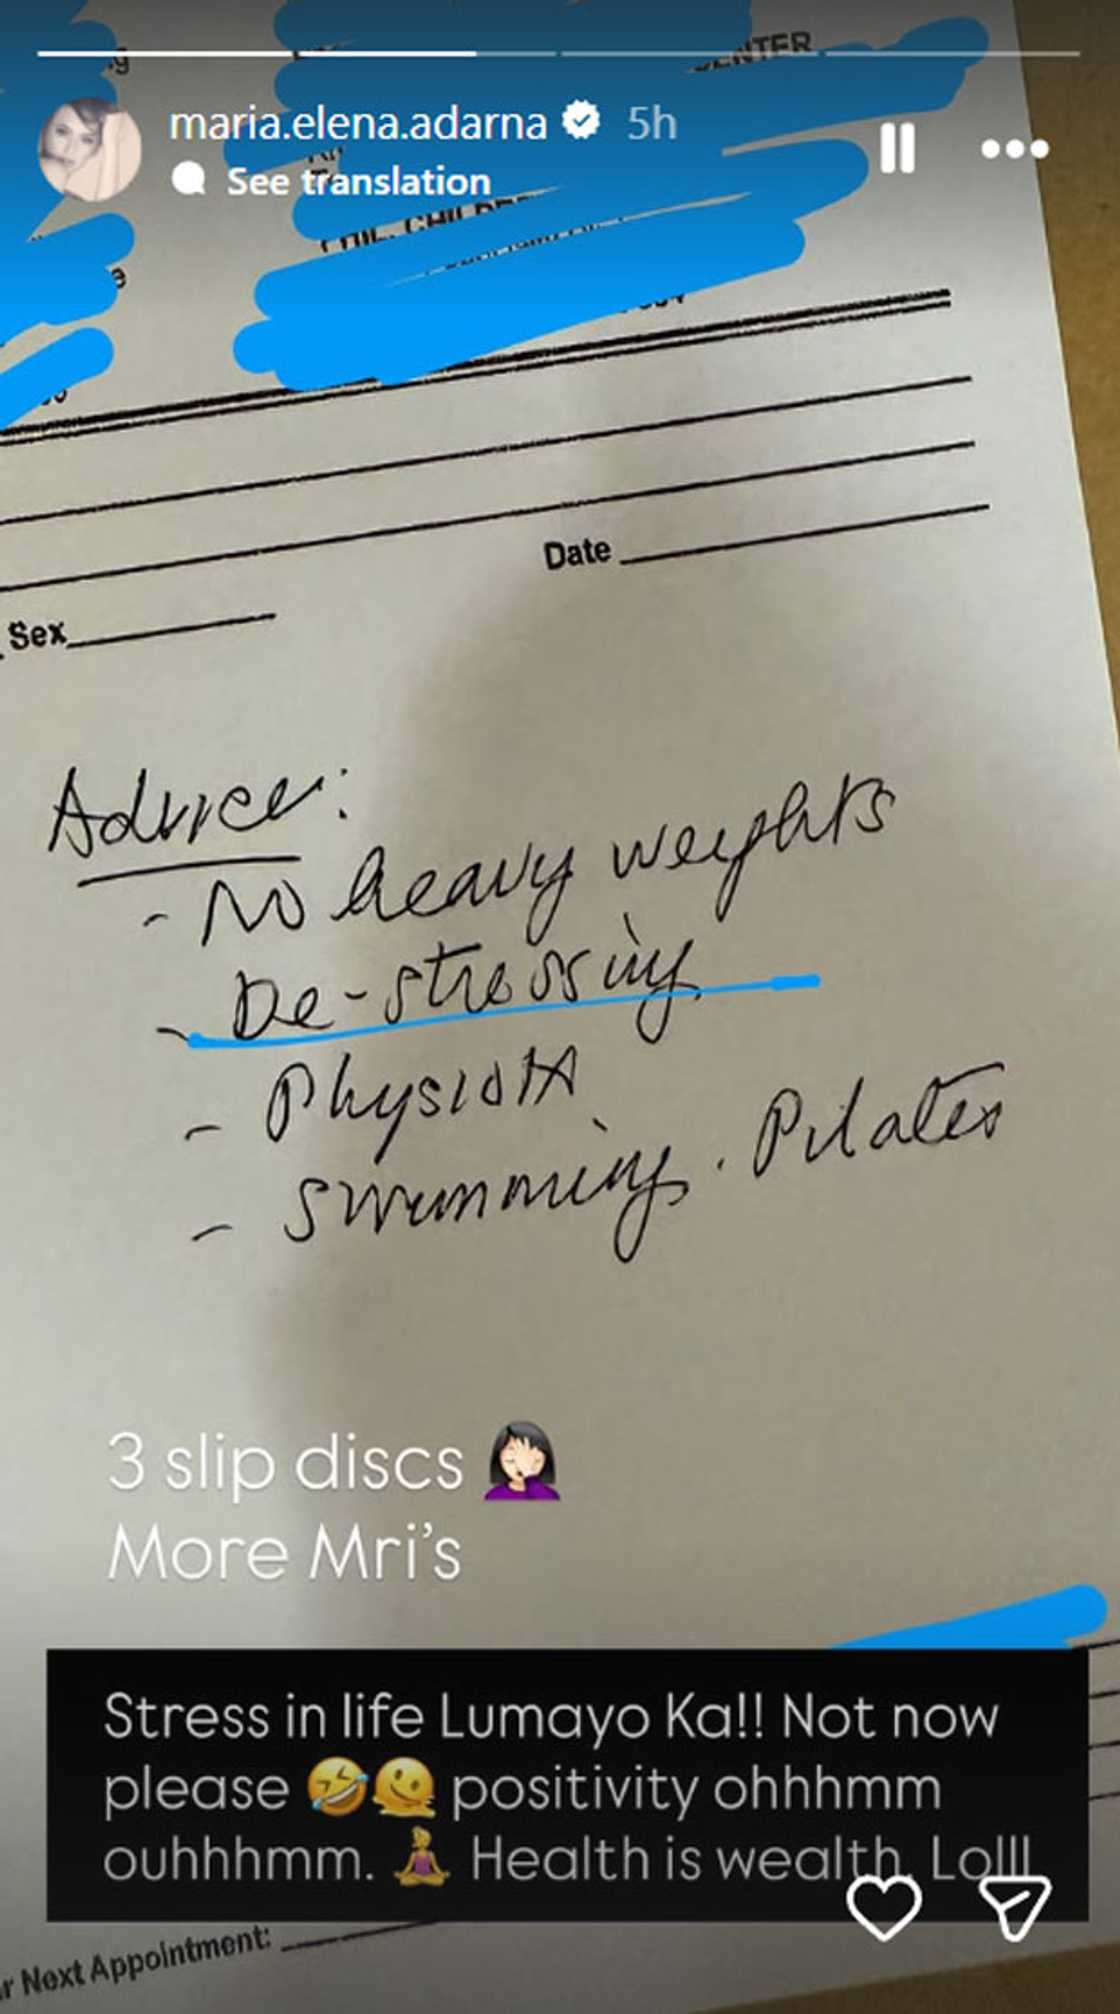 CENTER
maria.elena.adarna 5h
See translation
Date
Sex
Advice:
- No heavy weights
- De-stressing
- Physio
- Swimming. Pilates
3 slip discs 🤦🏻‍♀️
More Mri's
Stress in life Lumayo Ka!! Not now
please 🤣🫠 positivity ohhhmm
ouhhhmm. 🧘🏼‍♀️ Health is wealth. Lolll
Next Appointment: